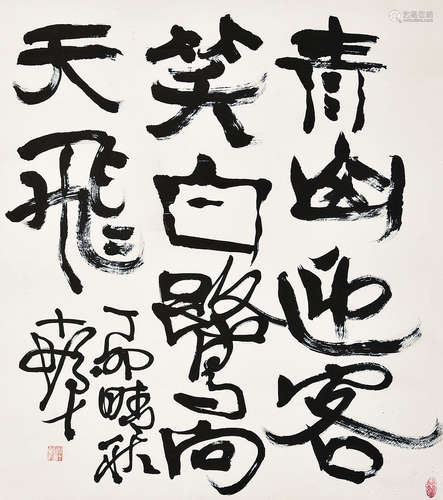 青山迎客
笑白鷺向
天飛
丁卯晴秋